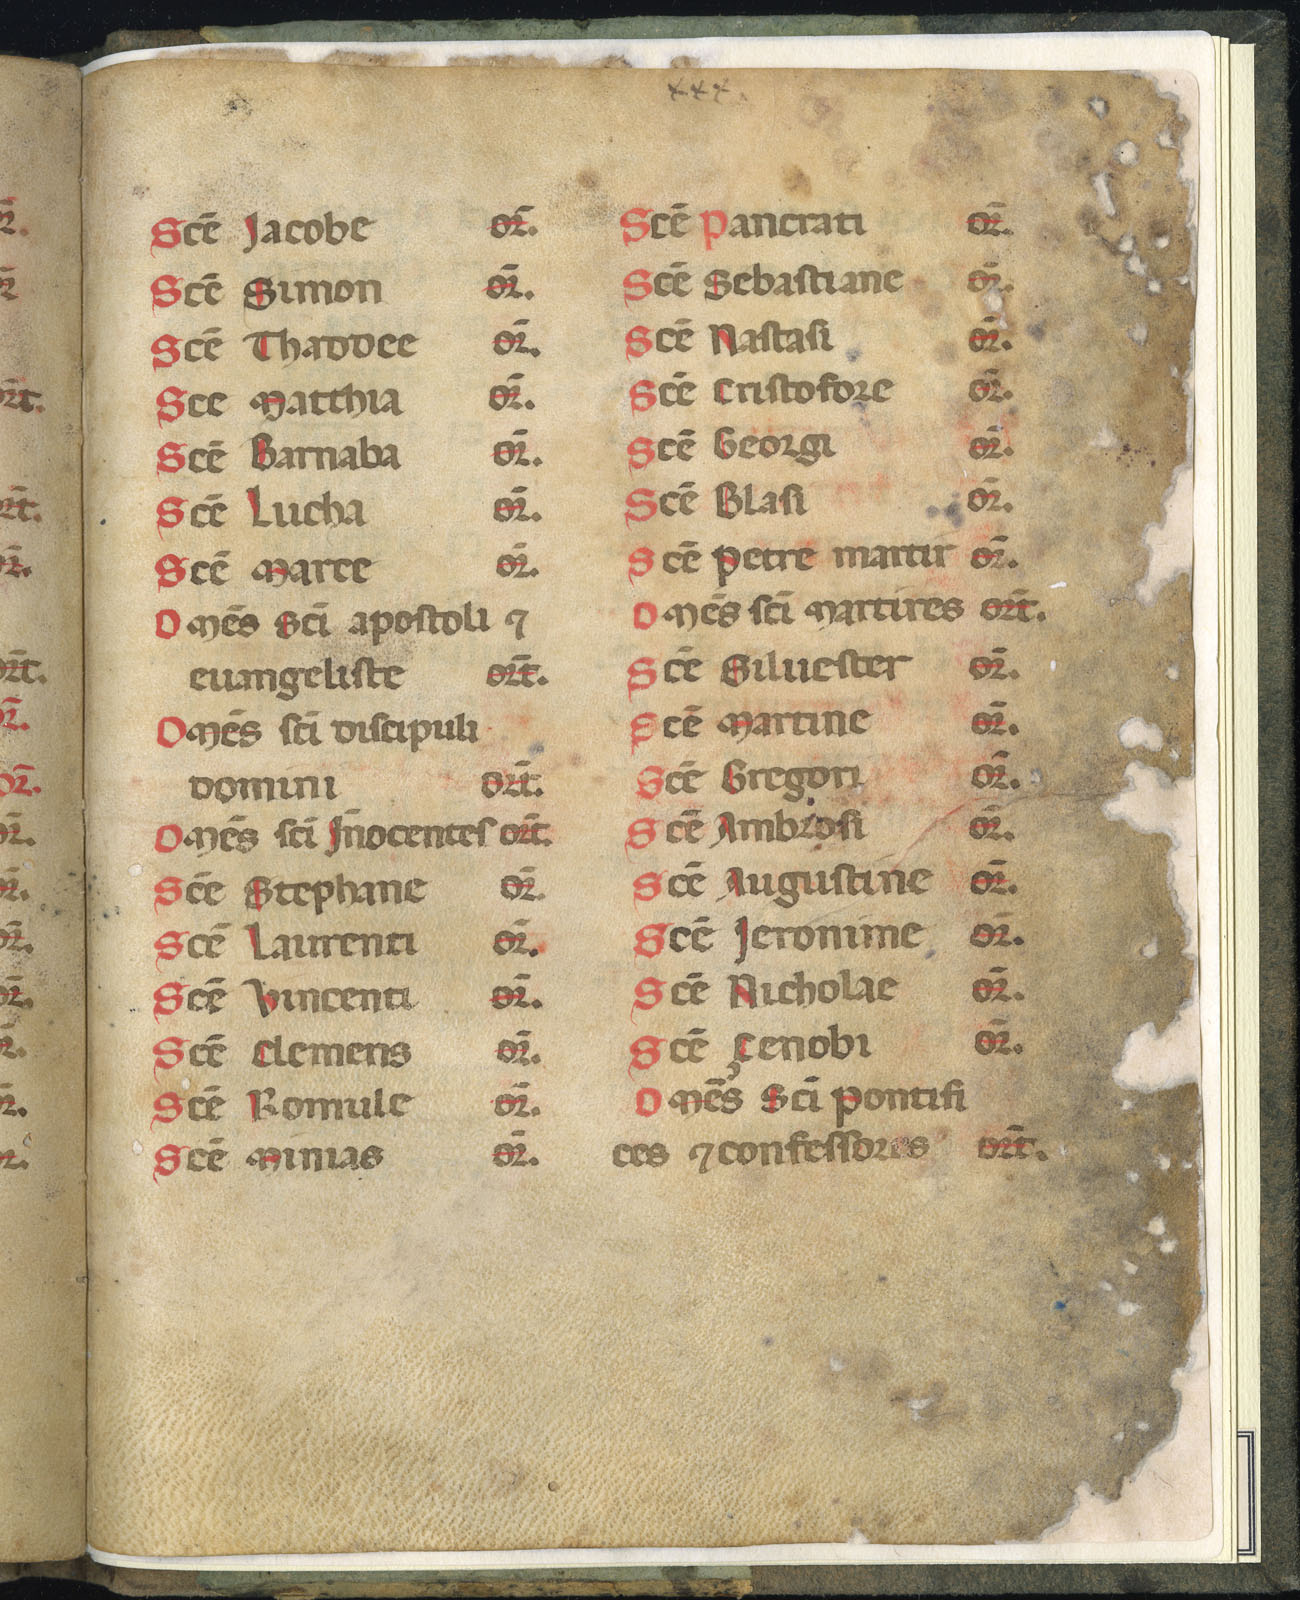 xxx.
Scē Jacobe or̄.
Scē Simon or̄.
Scē Thaddee or̄.
Sce Matthia or̄.
Scē Barnaba or̄.
Scē Lucha or̄.
Scē Marce or̄.
Omēs Scī apostoli ⁊
euangeliste or̄t.
Omēs scī discipuli
domini or̄t.
Omēs scī Jn̄ocentes or̄t.
Scē Stephane or̄.
Scē Laurenti or̄.
Scē Vincenti or̄.
Scē Clemens or̄.
Scē Romule or̄.
Scē Minias or̄.
Scē Pancrati or̄.
Scē Sebastiane or̄.
Scē Nastasi or̄.
Scē Cristofore or̄.
Scē Georgi or̄.
Scē Blasi or̄.
Scē Petre martir or̄.
Omēs scī Martires or̄t.
Scē Siluester or̄.
Scē Martine or̄.
Scē Gregori or̄.
Scē Ambrosi or̄.
Scē Augustine or̄.
Scē Jeronime or̄.
Scē Nicholae or̄.
Scē Çenobi or̄.
Omēs Scī pontifi
ces ⁊ confessores or̄t.